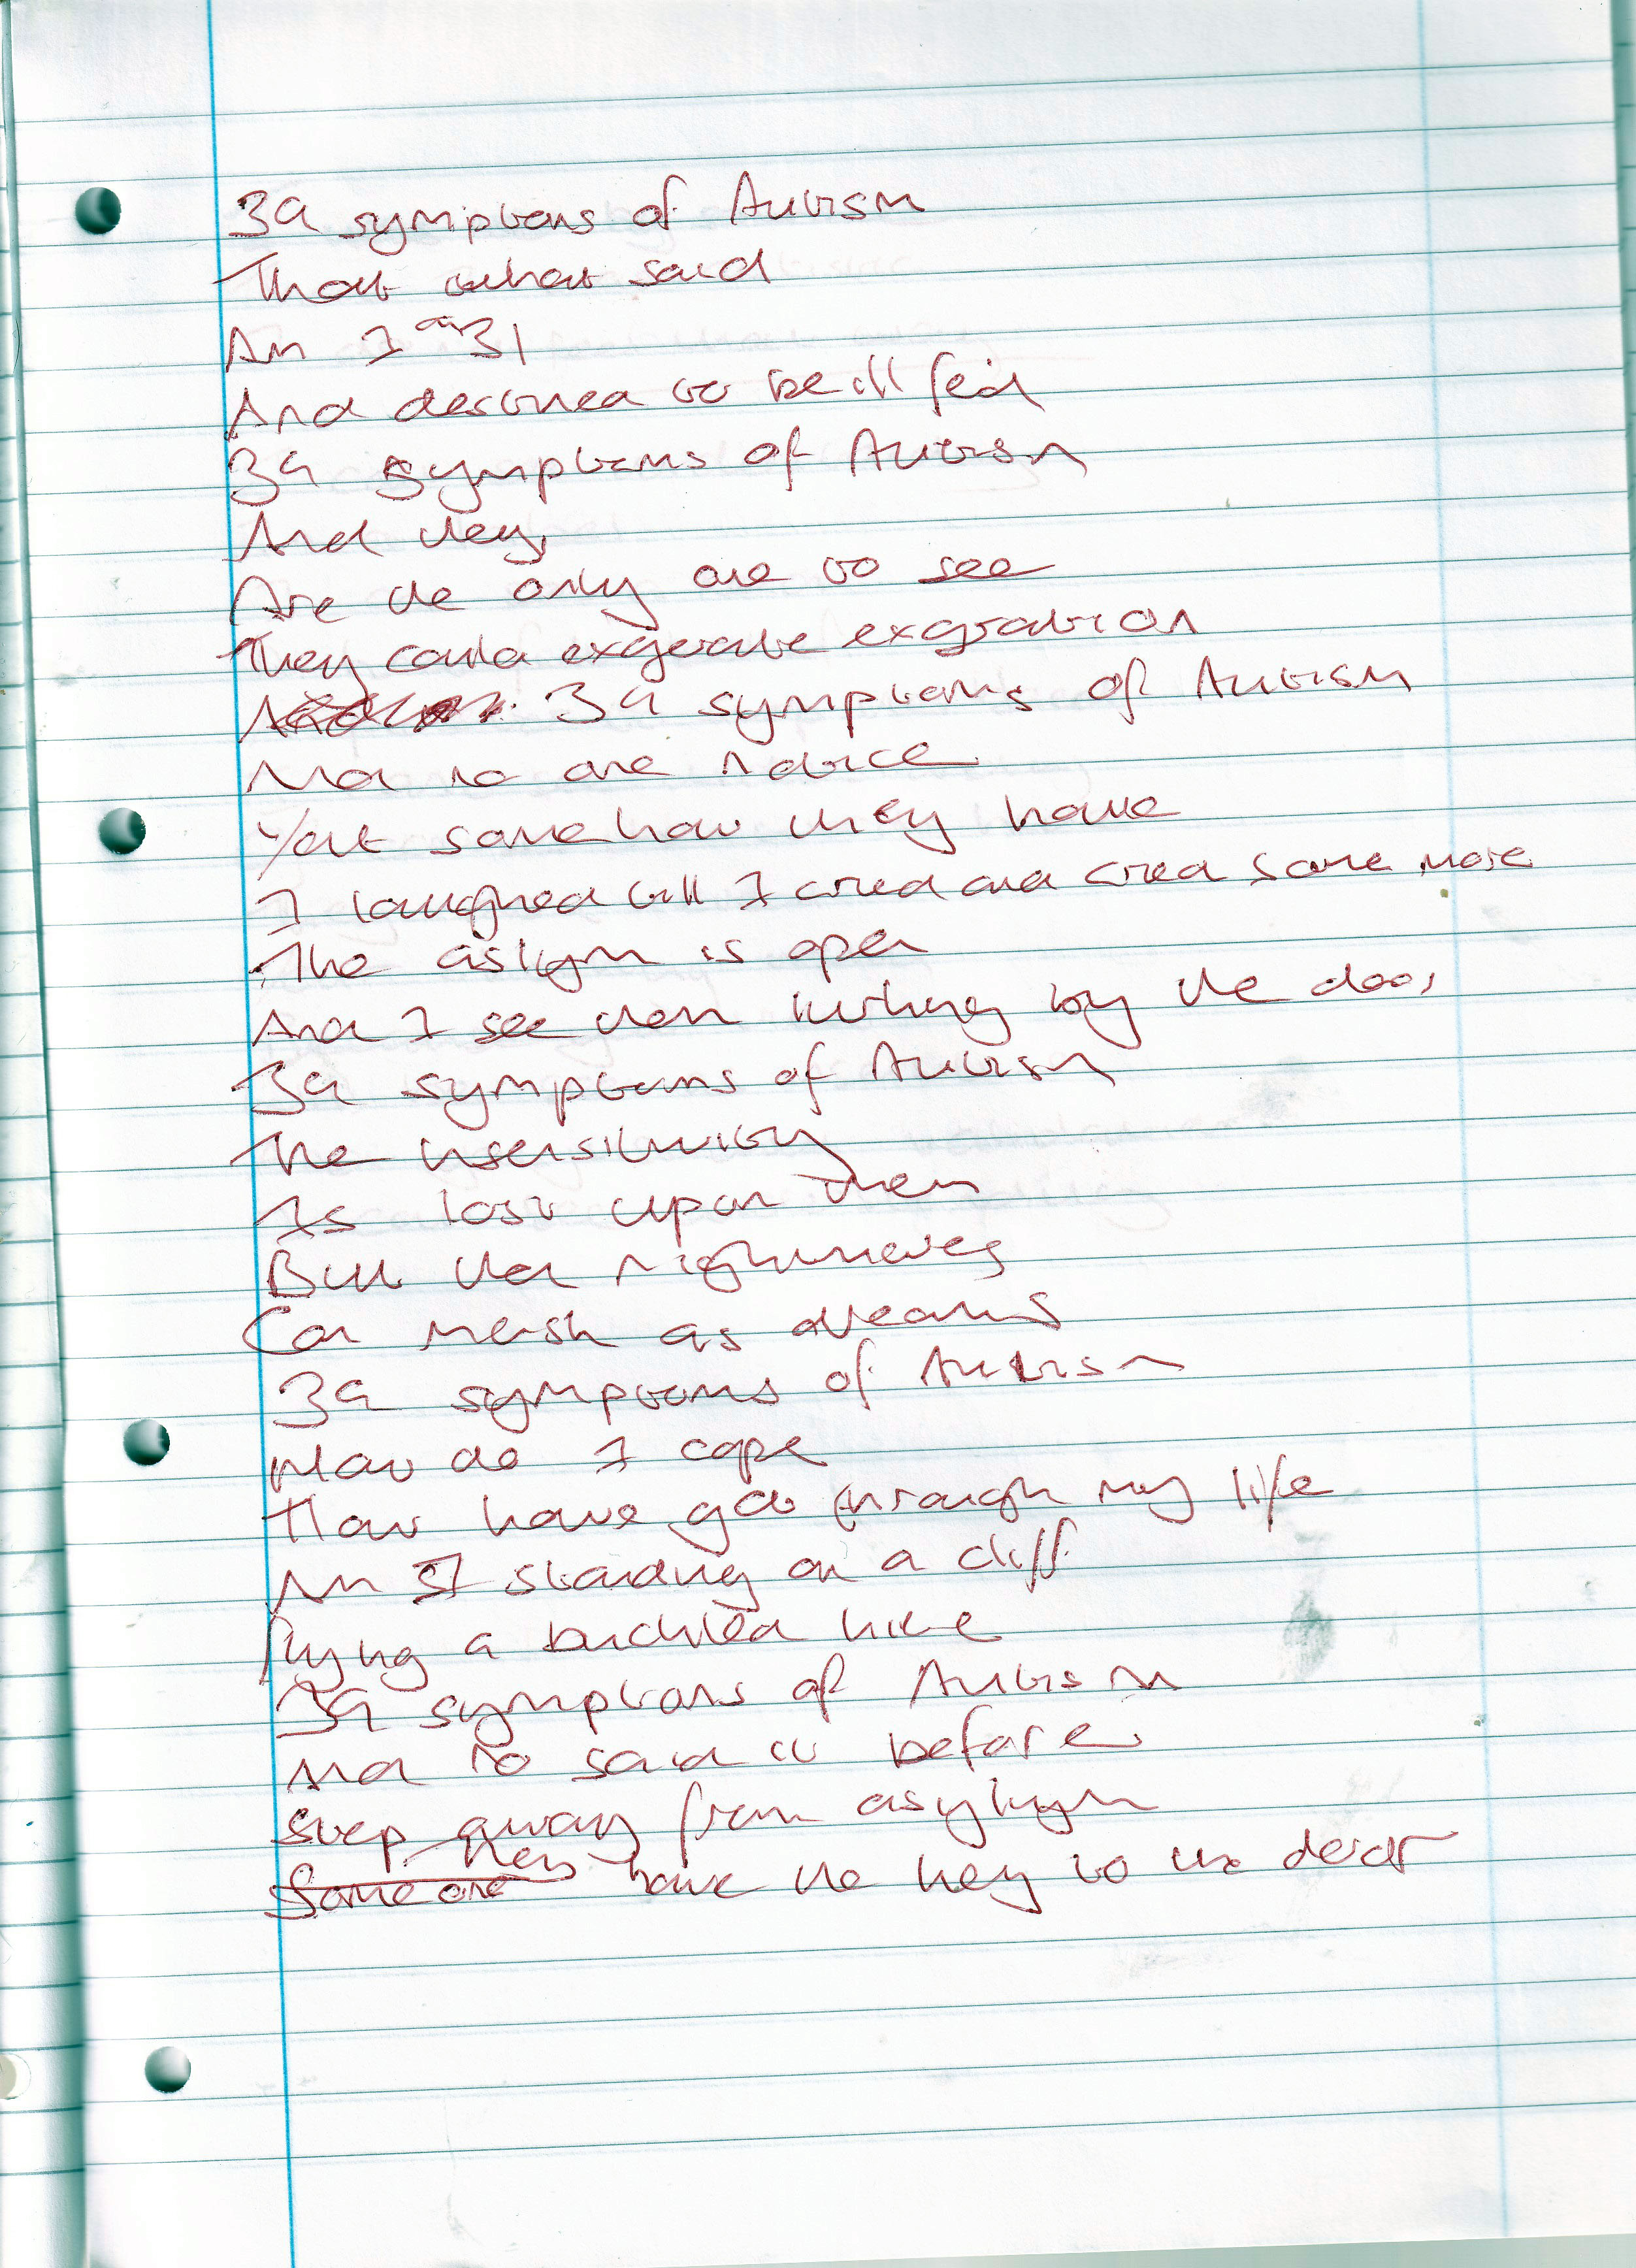 39 symptoms of Autism
That what said
Am I am 31
And destined to be ill feid
39 symptoms of Autism
And they
Are the only one to see
They could exgerate exgration
39 symptoms of Autism
And no one notice
Yet some how they have
I laughed till I cried and cried some more
The aslym is open
And I see them lurking by the door
39 symptoms of Autism
The insensitivity
Is lost upon them
But then nightmares
Can mersh as dreams
39 symptoms of Autism
How do I cope
How have got through my life
Am I standing on a cliff
flying a buckled kite
39 symptoms of Autism
And to said it before
Step away from asylym
They have the key to the door